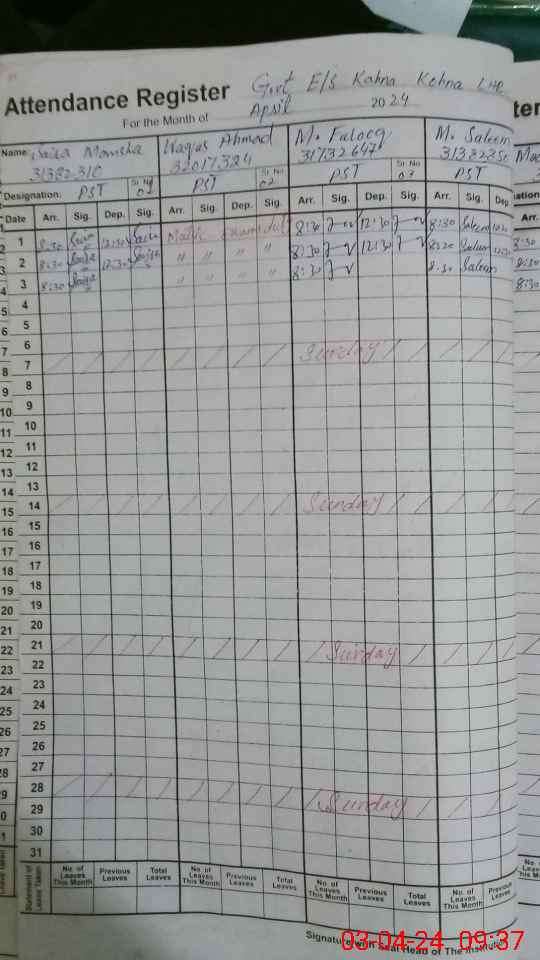 Attendance Register Govt E/S Kahna Kohna LHR
For the Month of April 2024
Name: Waqas Ahmad M. Farooq M. Saleem
31382310 32017324 31732647
Designation: PST Sr No 01 PST Sr No 02 PST Sr No 03 PST
Date Arr. Sig. Dep. Sig. Arr. Sig. Dep. Sig. Arr. Sig. Dep. Sig. Arr. Sig. Dep.
1 8:30 12:30 Matric exam duty 8:30 12:30 8:30 Saleem
2 8:30 12:30 " " " " 8:30 12:30 8:20 Saleem
3 8:30 " " " " 8:30 8:30 Saleem
4
5
6
7 Sunday
8
9
10
11
12
13
14 Sunday
15
16
17
18
19
20
21 Sunday
22
23
24
25
26
27
28 Sunday
29
30
31
Statement of Leave Taken No. of Leaves This Month Previous Leaves Total Leaves No. of Leaves This Month Previous Leaves Total Leaves No. of Leaves This Month Previous Leaves Total Leaves No. of Leaves This Month Previous Leaves
Signature with Seal Head of The Institution
03-04-24 09:37